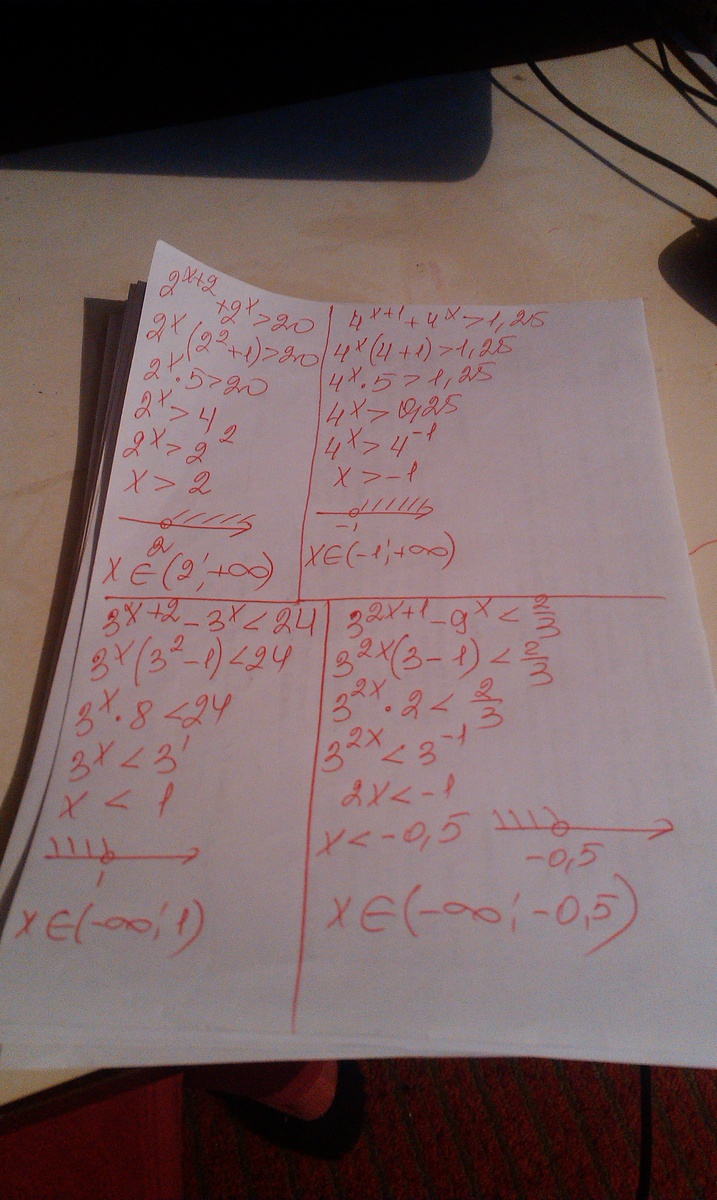 2^{x+2} + 2^x > 20
2^x (2^2 + 1) > 20
2^x · 5 > 20
2^x > 4
2^x > 2^2
x > 2
2
x ∈ (2; +∞)
4^{x+1} + 4^x > 1,25
4^x (4 + 1) > 1,25
4^x · 5 > 1,25
4^x > 0,25
4^x > 4^{-1}
x > -1
-1
x ∈ (-1; +∞)
3^{x+2} - 3^x < 24
3^x (3^2 - 1) < 24
3^x · 8 < 24
3^x < 3^1
x < 1
1
x ∈ (-∞; 1)
3^{2x+1} - 9^x < 2/3
3^{2x} (3 - 1) < 2/3
3^{2x} · 2 < 2/3
3^{2x} < 3^{-1}
2x < -1
x < -0,5
-0,5
x ∈ (-∞; -0,5)